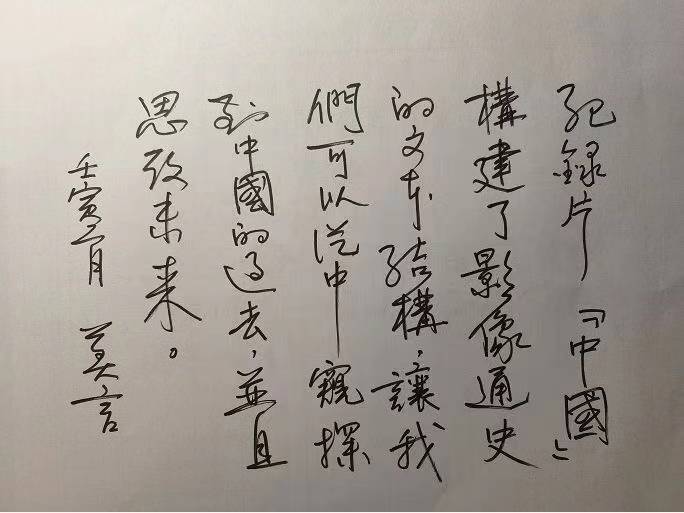 紀錄片『中國』
構建了影像通史
的文本結構，讓我
們可以從中窺探
到中國的過去，並且
思考未来。
壬寅二月 莫言